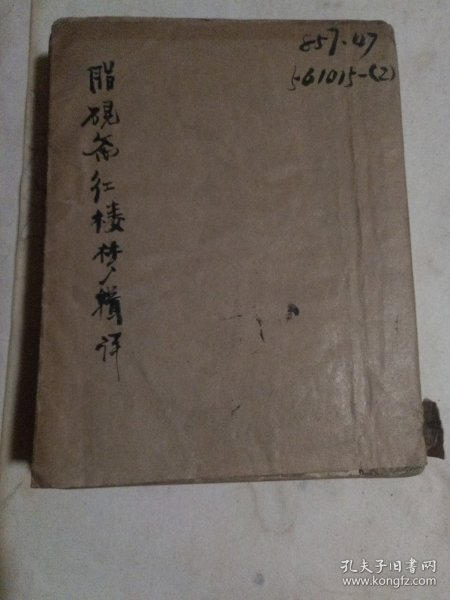 857.47
561015-(2)
脂砚斋红楼梦辑评
孔夫子旧书网
www.kongfz.com